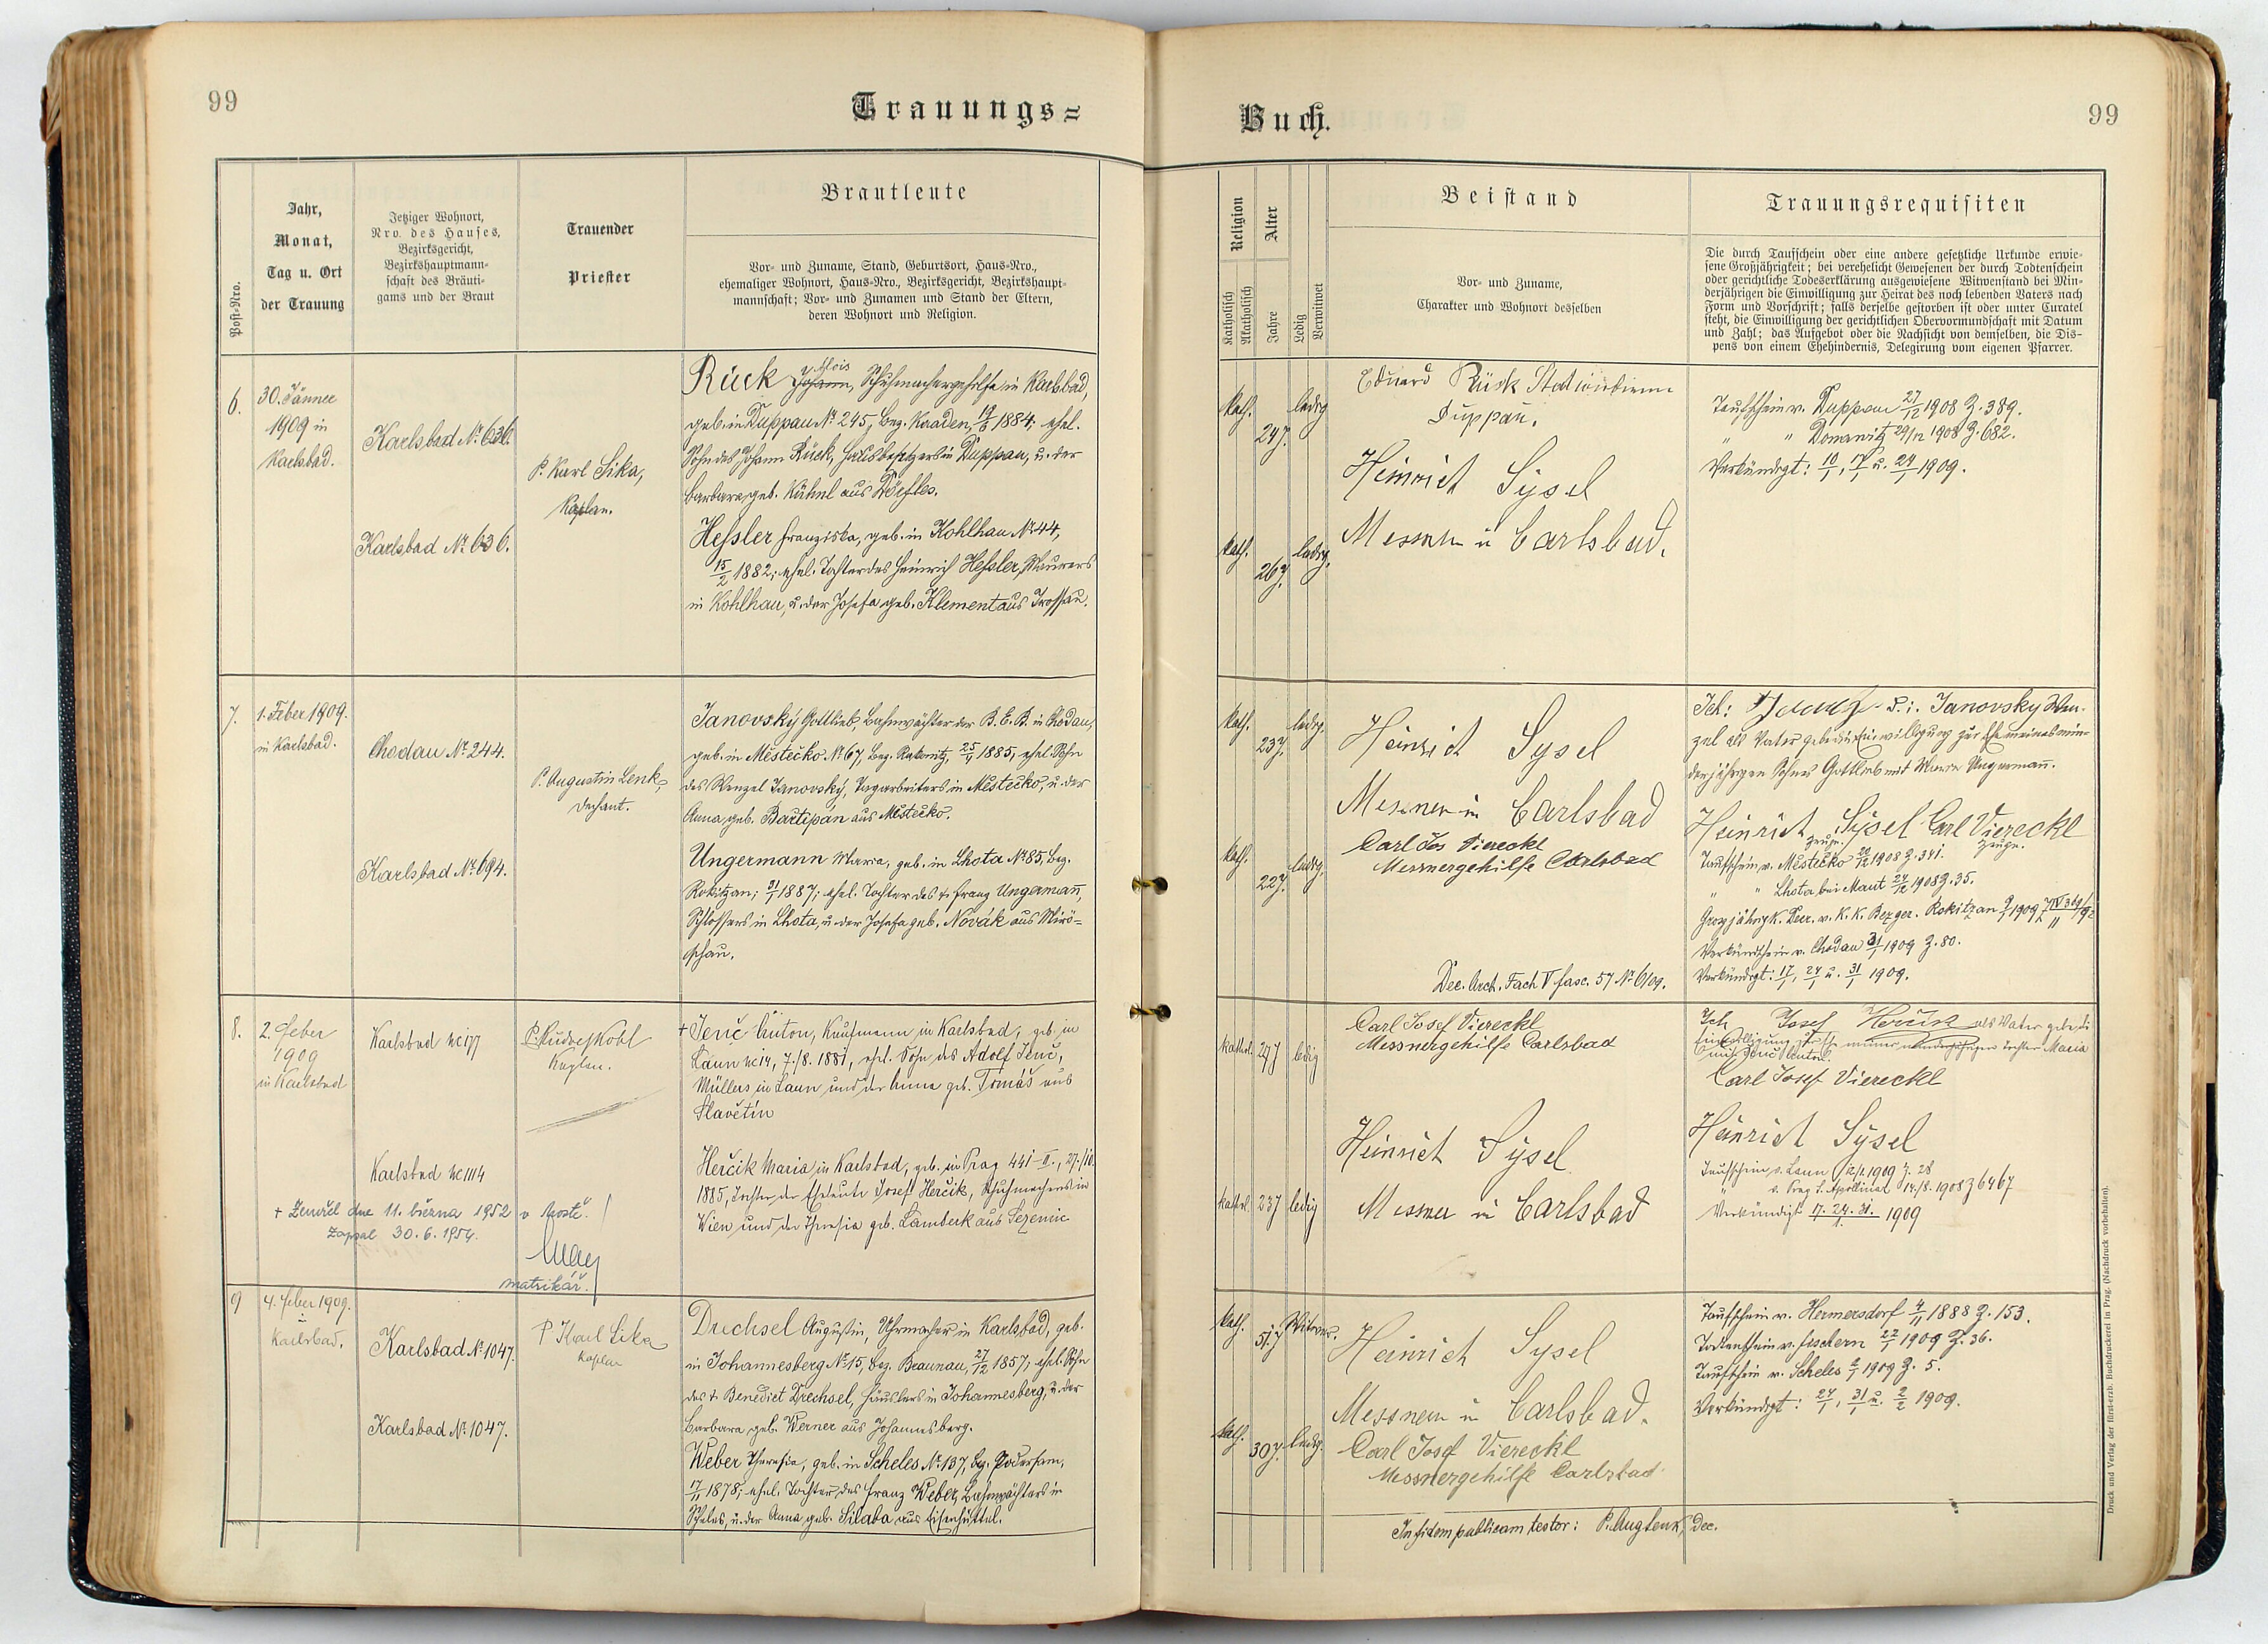 99
Trauungs=
Post-Nro.
Jahr,
Monat,
Tag u. Ort
der Trauung
Jetziger Wohnort,
Nro. des Hauses,
Bezirksgericht,
Bezirkshauptmann-
schaft des Bräuti-
gams und der Braut
Trauender
Priester
Brautleute
Vor- und Zuname, Stand, Geburtsort, Haus-Nro.,
ehemaliger Wohnort, Haus-Nro., Bezirksgericht, Bezirkshaupt-
mannschaft; Vor- und Zunamen und Stand der Eltern,
deren Wohnort und Religion.
6.
30. Jänner
1909 in
Karlsbad.
Karlsbad № 636.
Karlsbad № 636.
P. Karl Sika,
Kaplan.
Alois
Rück Johann, Schuhmachergehilfe in Karlsbad,
geb. in Duppau № 245, Bez. Kaaden, 1884; ehel.
Sohn des Johann Rück, Hausbesitzers in Duppau, u. der
Barbara, geb. Kühnl aus Dörfles.
Hessler Franziska, geb. in Kohlhau № 44,
15/2 1882; ehel. Tochter des Heinrich Hessler, Maurers
in Kohlhau, u. der Josefa geb. Klement aus Trossau.
7.
1. Feber 1909.
in Karlsbad.
Chodau № 244.
Karlsbad № 694.
P. Augustin Lenk,
Dechant.
Janovský Gottlieb, Bahnwächter der B. E. B. in Chodau,
geb. in Městečko № 67, Bez. Rakonitz, 25/ 1885, ehel. Sohn
des Wenzel Janovský, Tagarbeiters in Městečko, u. der
Anna, geb. Bartipán aus Městečko.
Ungermann Maria, geb. in Lhota № 85, Bez.
Rokitzan; 31/1 1887; ehel. Tochter des † Franz Ungermañ,
Schlossers in Lhota, u. der Josefa geb. Novák aus Mirö-
schau.
8.
2. Feber
1909
in Karlsbad
Karlsbad nc 177
Karlsbad nc 1114
P. Rudolf Kohl
Kaplan.
† Jenč Anton, Kaufmann in Karlsbad, geb. in
Laun nc 14, 7./8. 1881, ehel. Sohn des Adolf Jenč,
Müllers in Laun und der Anna geb. Tomáš aus
Slavětín
Herčik Maria in Karlsbad, geb. in Prag 441-II., 27./10.
1885, Tochter der Eheleute Josef Herčik, Schuhmachers in
Wien und der Theresia geb. Lambeck aus Sezemic
+ Zemřel dne 11. března 1952 v Mostě.
Zapsal 30. 6. 1954.
matrikář.
9
4. Feber 1909.
in
Karlsbad.
Karlsbad № 1047.
Karlsbad № 1047.
P Karl Sika
Kaplan
Drechsel Augustin, Uhrmacher in Karlsbad, geb.
in Johannesberg № 15, Bez. Braunau, 27/12 1857, ehel. Sohn
des † Benedict Drechsel, Häuslers in Johannesberg, u. der
Barbara geb. Werner aus Johannesberg.
Weber Theresia, geb. in Scheles № 137, Bez. Podersam,
17/11 1878; ehel. Tochter des Franz Weber, Bahnwächters in
Scheles, u. der Anna geb. Silaba aus Eisenhüttel.
Buch.
99
Religion
Katholisch
Akatholisch
Alter
Jahre
Ledig
Verwitwet
Beistand
Vor- und Zuname,
Charakter und Wohnort desselben
Trauungsrequisiten
Die durch Taufschein oder eine andere gesetzliche Urkunde erwie-
sene Großjährigkeit; bei verehelicht Gewesenen der durch Todtenschein
oder gerichtliche Todeserklärung ausgewiesene Witwenstand bei Min-
derjährigen die Einwilligung zur Heirat des noch lebenden Vaters nach
Form und Vorschrift; falls derselbe gestorben ist oder unter Curatel
steht, die Einwilligung der gerichtlichen Obervormundschaft mit Datum
und Zahl; das Aufgebot oder die Nachsicht von demselben, die Dis-
pens von einem Ehehindernis, Delegirung vom eigenen Pfarrer.
kath.
24 J.
ledig
kath.
26 J.
ledig.
Eduard Rück
Duppau.
Heinrich Sysel
Messner in Carlsbad.
Taufschein v. Duppau 27/12 1908 Z. 389.
" " Domawitz 29/12 1908 Z. 682.
Verkündigt: 10/1, 17/1 u. 24/1 1909.
kath.
23 J.
ledig.
kath.
22 J.
ledig.
Heinrich Sysel
Messner in Carlsbad
Carl Jos Viereckl
Messnergehilfe Carlsbad
Dec. Arch. Fach V fasc. 57 № 6/09.
Ich: d. i. Janovsky Wen-
zel als Vater gebe die Einwilligung zur Ehe meines min-
derjährigen Sohnes Gottlieb mit Maria Ungermañ.
Heinrich Sysel Carl Viereckl
Zeuge. Zeuge.
Taufschein v. Městečko 1908 Z. 341.
" " Lhota bei Maut 24/12 1908 Z. 35.
Grossjährigk. Decr. v. K. K. Bezger. Rokitzan 9/1 1909
Verkündschein v. Chodau 31/1 1909 Z. 80.
Verkündigt: 17/1, 24/1 u. 31/1 1909.
kathol.
27 J
ledig
kathol.
23 J
ledig
Carl Josef Viereckl
Messnergehilfe Carlsbad
Heinrich Sysel
Messner in Carlsbad
Ich Josef Herčik als Vater gebe die
Einwilligung zur Ehe meiner minderjährigen Tochter Maria
mit Jenč Anton.
Carl Josef Viereckl
Heinrich Sysel
Taufschein v. Laun 1909 Z. 28
" v. Prag S. Apollinat 14./8. 1908 Z 6467
Verkündigt 17. 24. 31./1. 1909
kath.
51 J
Witwer.
kath.
30 J.
ledig.
Heinrich Sysel
Messner in Carlsbad.
Carl Josef Viereckl
Messnergehilfe Carlsbad
Taufschein v. Hermersdorf 4/11 1888 Z. 153.
Todtenschein v. Fischern 22/1 1909 Z. 36.
Taufschein v. Scheles 2/1 1909 Z. 5.
Verkündigt: 24/1, 31/1 u. 2/2 1909.
In fidem publicam testor: P. Aug Lenk, Dec.
Druck und Verlag der fürst-erzb. Buchdruckerei in Prag. (Nachdruck vorbehalten).